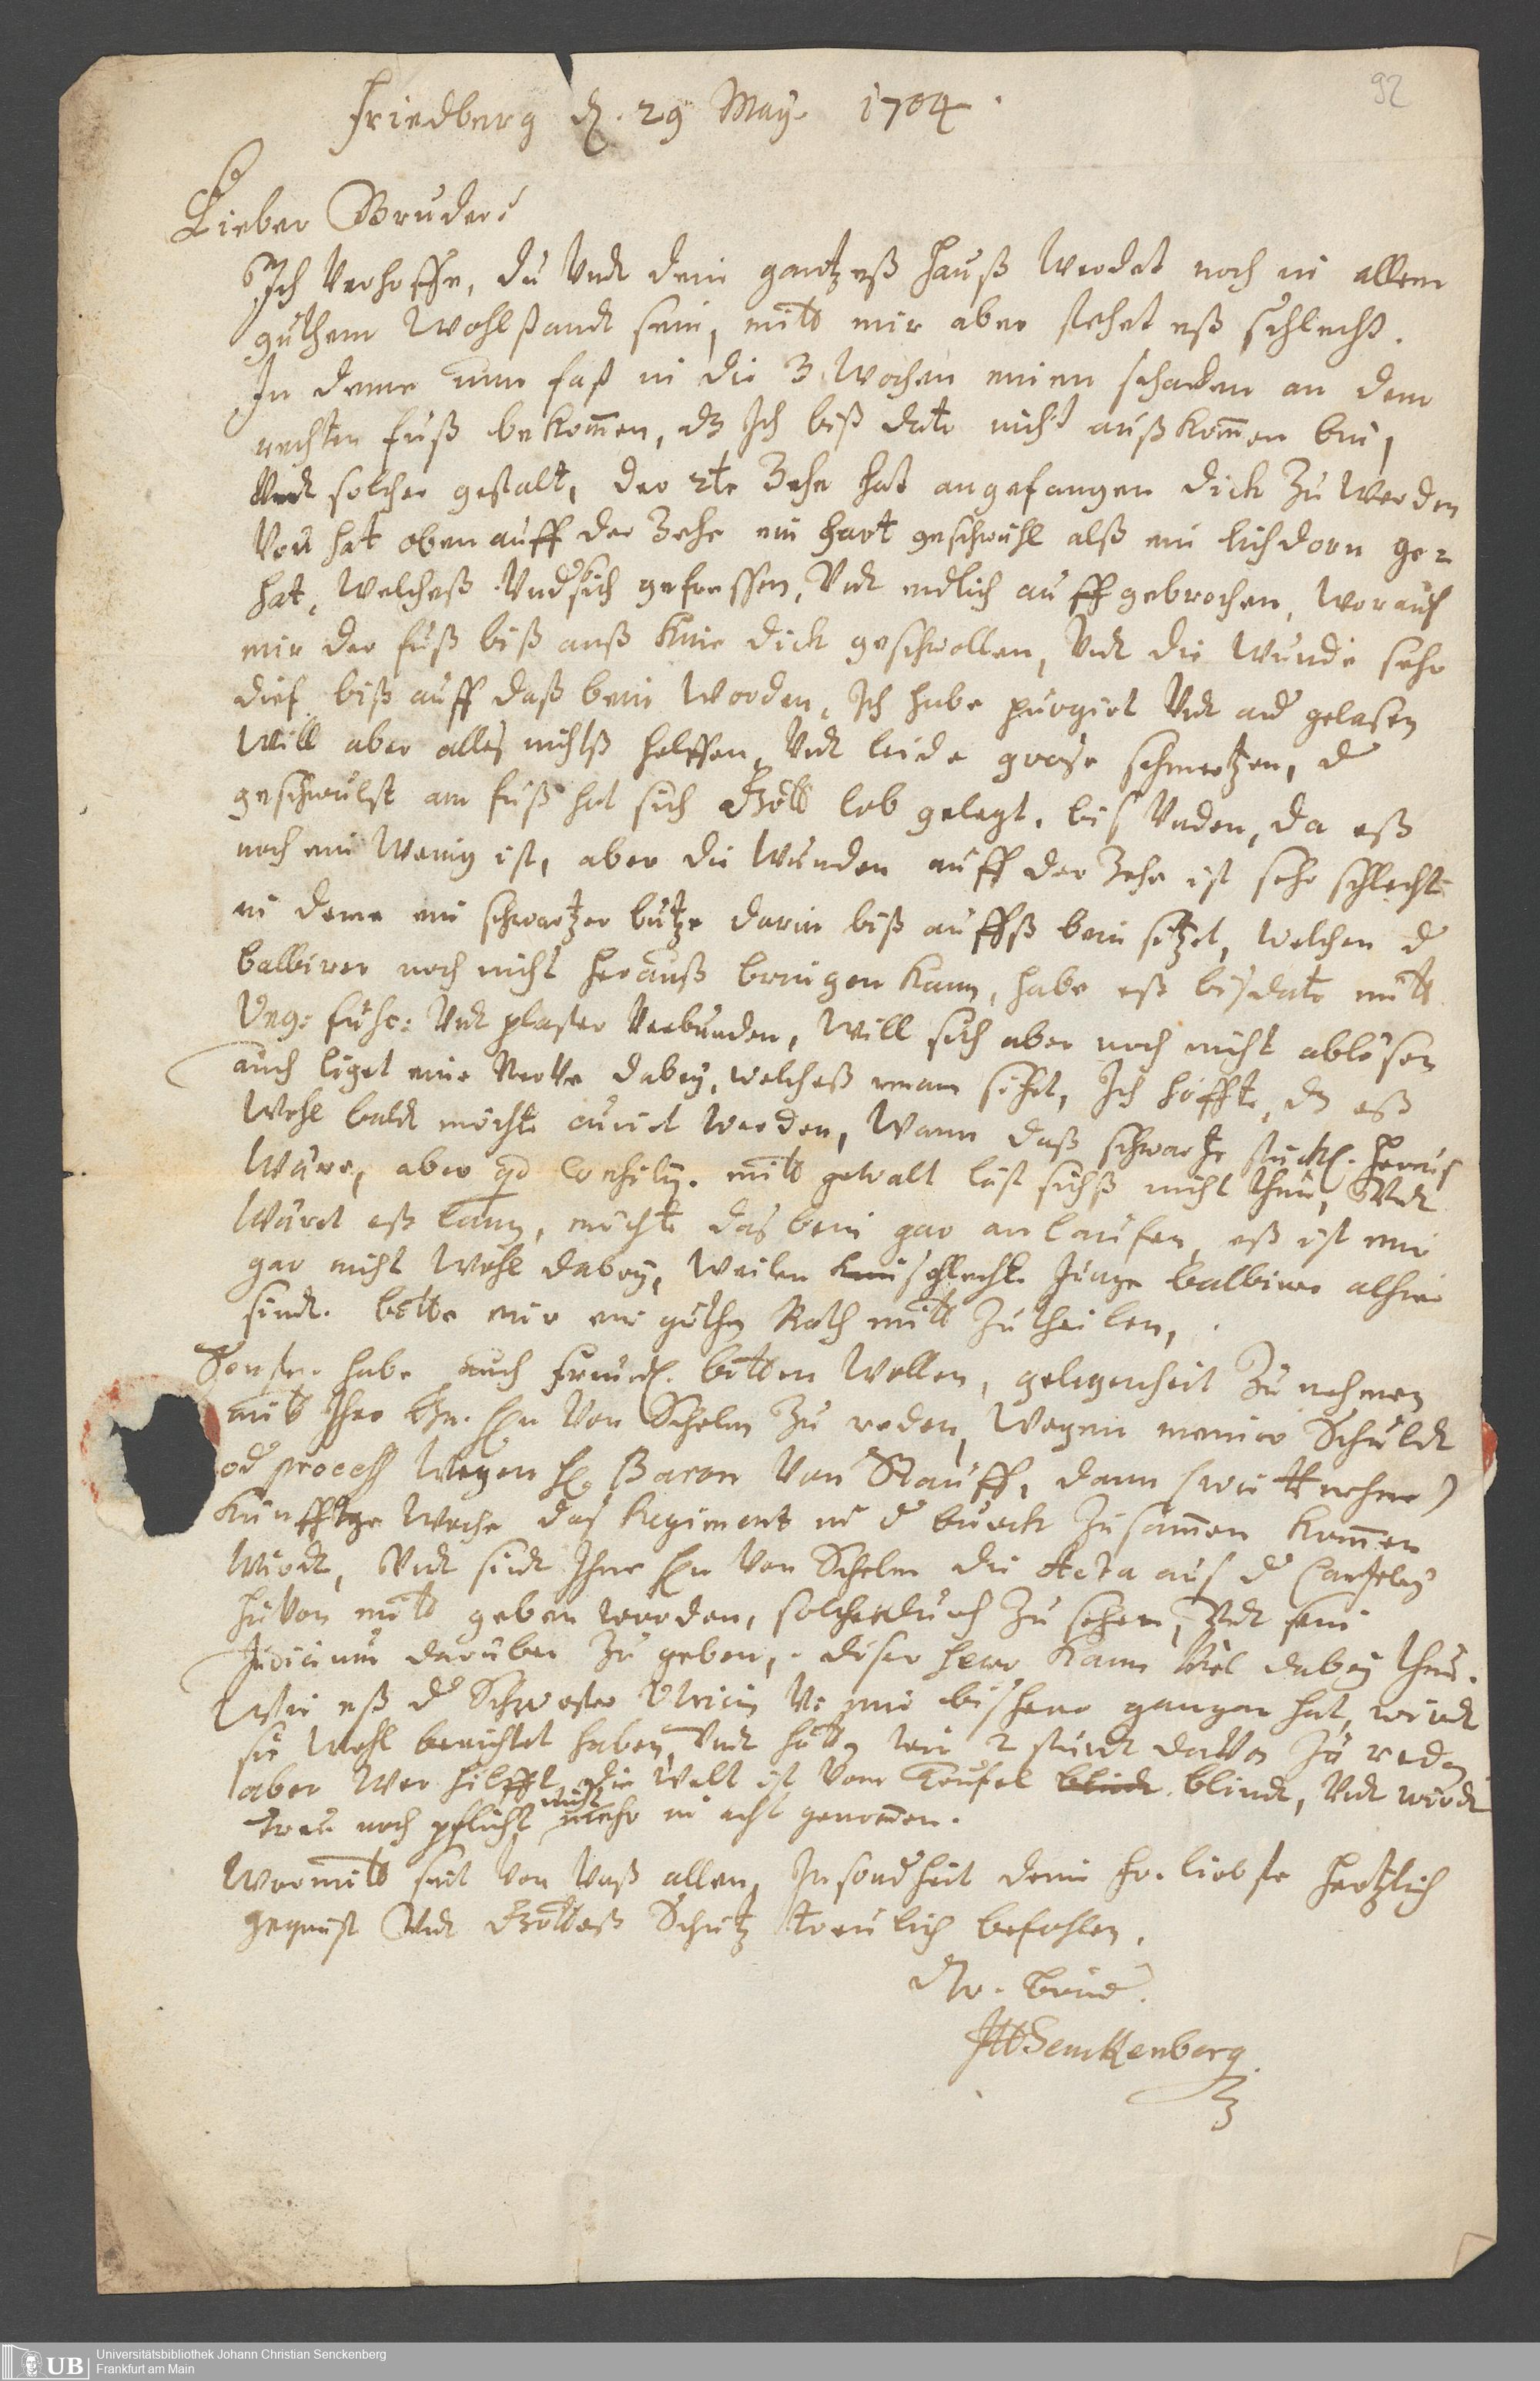 92
Friedberg d. 29 May. 1704.
Lieber Bruder!
Ich Verhoffe, du Undt dein gantzeß Hauß Werdet noch in allem
guthem Wohlstandt sein, mitt mir aber stehet eß schlecht.
In deme nun fast in die 3 Wochen einen schaden an dem
rechten fuß bekommen, dz Ich biß dato nicht außkommen bin,
Undt solcher gestalt, der 2te Zehe hat angefangen dick Zu Werden
Undt hat oben auff der Zehe ein hart geschwühl alß ein lichdorn ge=
hat, Welcheß Und sich gefressen, Undt endlich auff gebrochen, Worauf
mir der fuß biß anß Knie dick geschwollen, Undt die Wunde sehr
dief biß auff daß bein Worden, Ich habe purgirt Undt ad gelasen
Will aber alles nichtß helffen, Undt leide grose schmertzen, d
geschwulst am fuß hat sich Gott lob gelegt, bis Unden, da eß
noch ein Wenig ist, aber die Wunden auff der Zehe ist sehr schlecht
in deme ein schwartzer butze darin biß auffß bein sitzet, Welchen d
balbirer noch nicht herauß bringen kann, habe eß bisdato mitt
Ung: fusc: Undt plaster Verbunden, Will sich aber noch nicht ablösen
auch liget eine Nerve dabey, Welcheß man sihet, Ich hoffte, dz eß
Wohl baldt möchte curirt Werden, Wann daß schwartze stückl. heraus
Wäre, aber mitt gewalt läst sichß nicht thun, Undt
Würdt eß lang, möchte das bein gar anlaufen, eß ist mir
gar nicht Wohl dabey, Weilen schlechte Junge balbirer alhier
sindt. bitte mir ein guthen Rath mitt Zutheilen,
Sonsten habe auch freundl. bitten Wollen, gelegenheit Zu nehmen
mitt Ihro Hn. von Schelm Zu reden, Wegen meiner Schuldt
od process Wegen H. Baron Von Stauff, dann (wie Vernehme)
künfftige Woche das Regiment in d burck Zusammen kommen
Wirdt, Undt sindt Ihro Hn Von Schelm die Acta aus d Cantzeley
hievon mitt geben worden, solche durch Zu sehen, Undt sein
Judicium darüber Zu geben, diser herr kann Viel dabey thun.
Wie eß d Schwester Ulricin bishero gangen hat, wirdt
sie Wohl berichtet haben, Undt hätten wir 2 stundt davon Zu reden
aber Wer hilfft, die Welt ist Vom Teufel blindt, Undt wirdt
treu noch pflicht nicht mehr in acht genommen.
Wormitt seit Von Unß allen, Insonderheit dein fr. liebste hertzlich
gegrüst Undt Gotteß Schutz treulich befohlen.
Dr. Brud.
JHSenckenberg
UB
Universitätsbibliothek Johann Christian Senckenberg
Frankfurt am Main